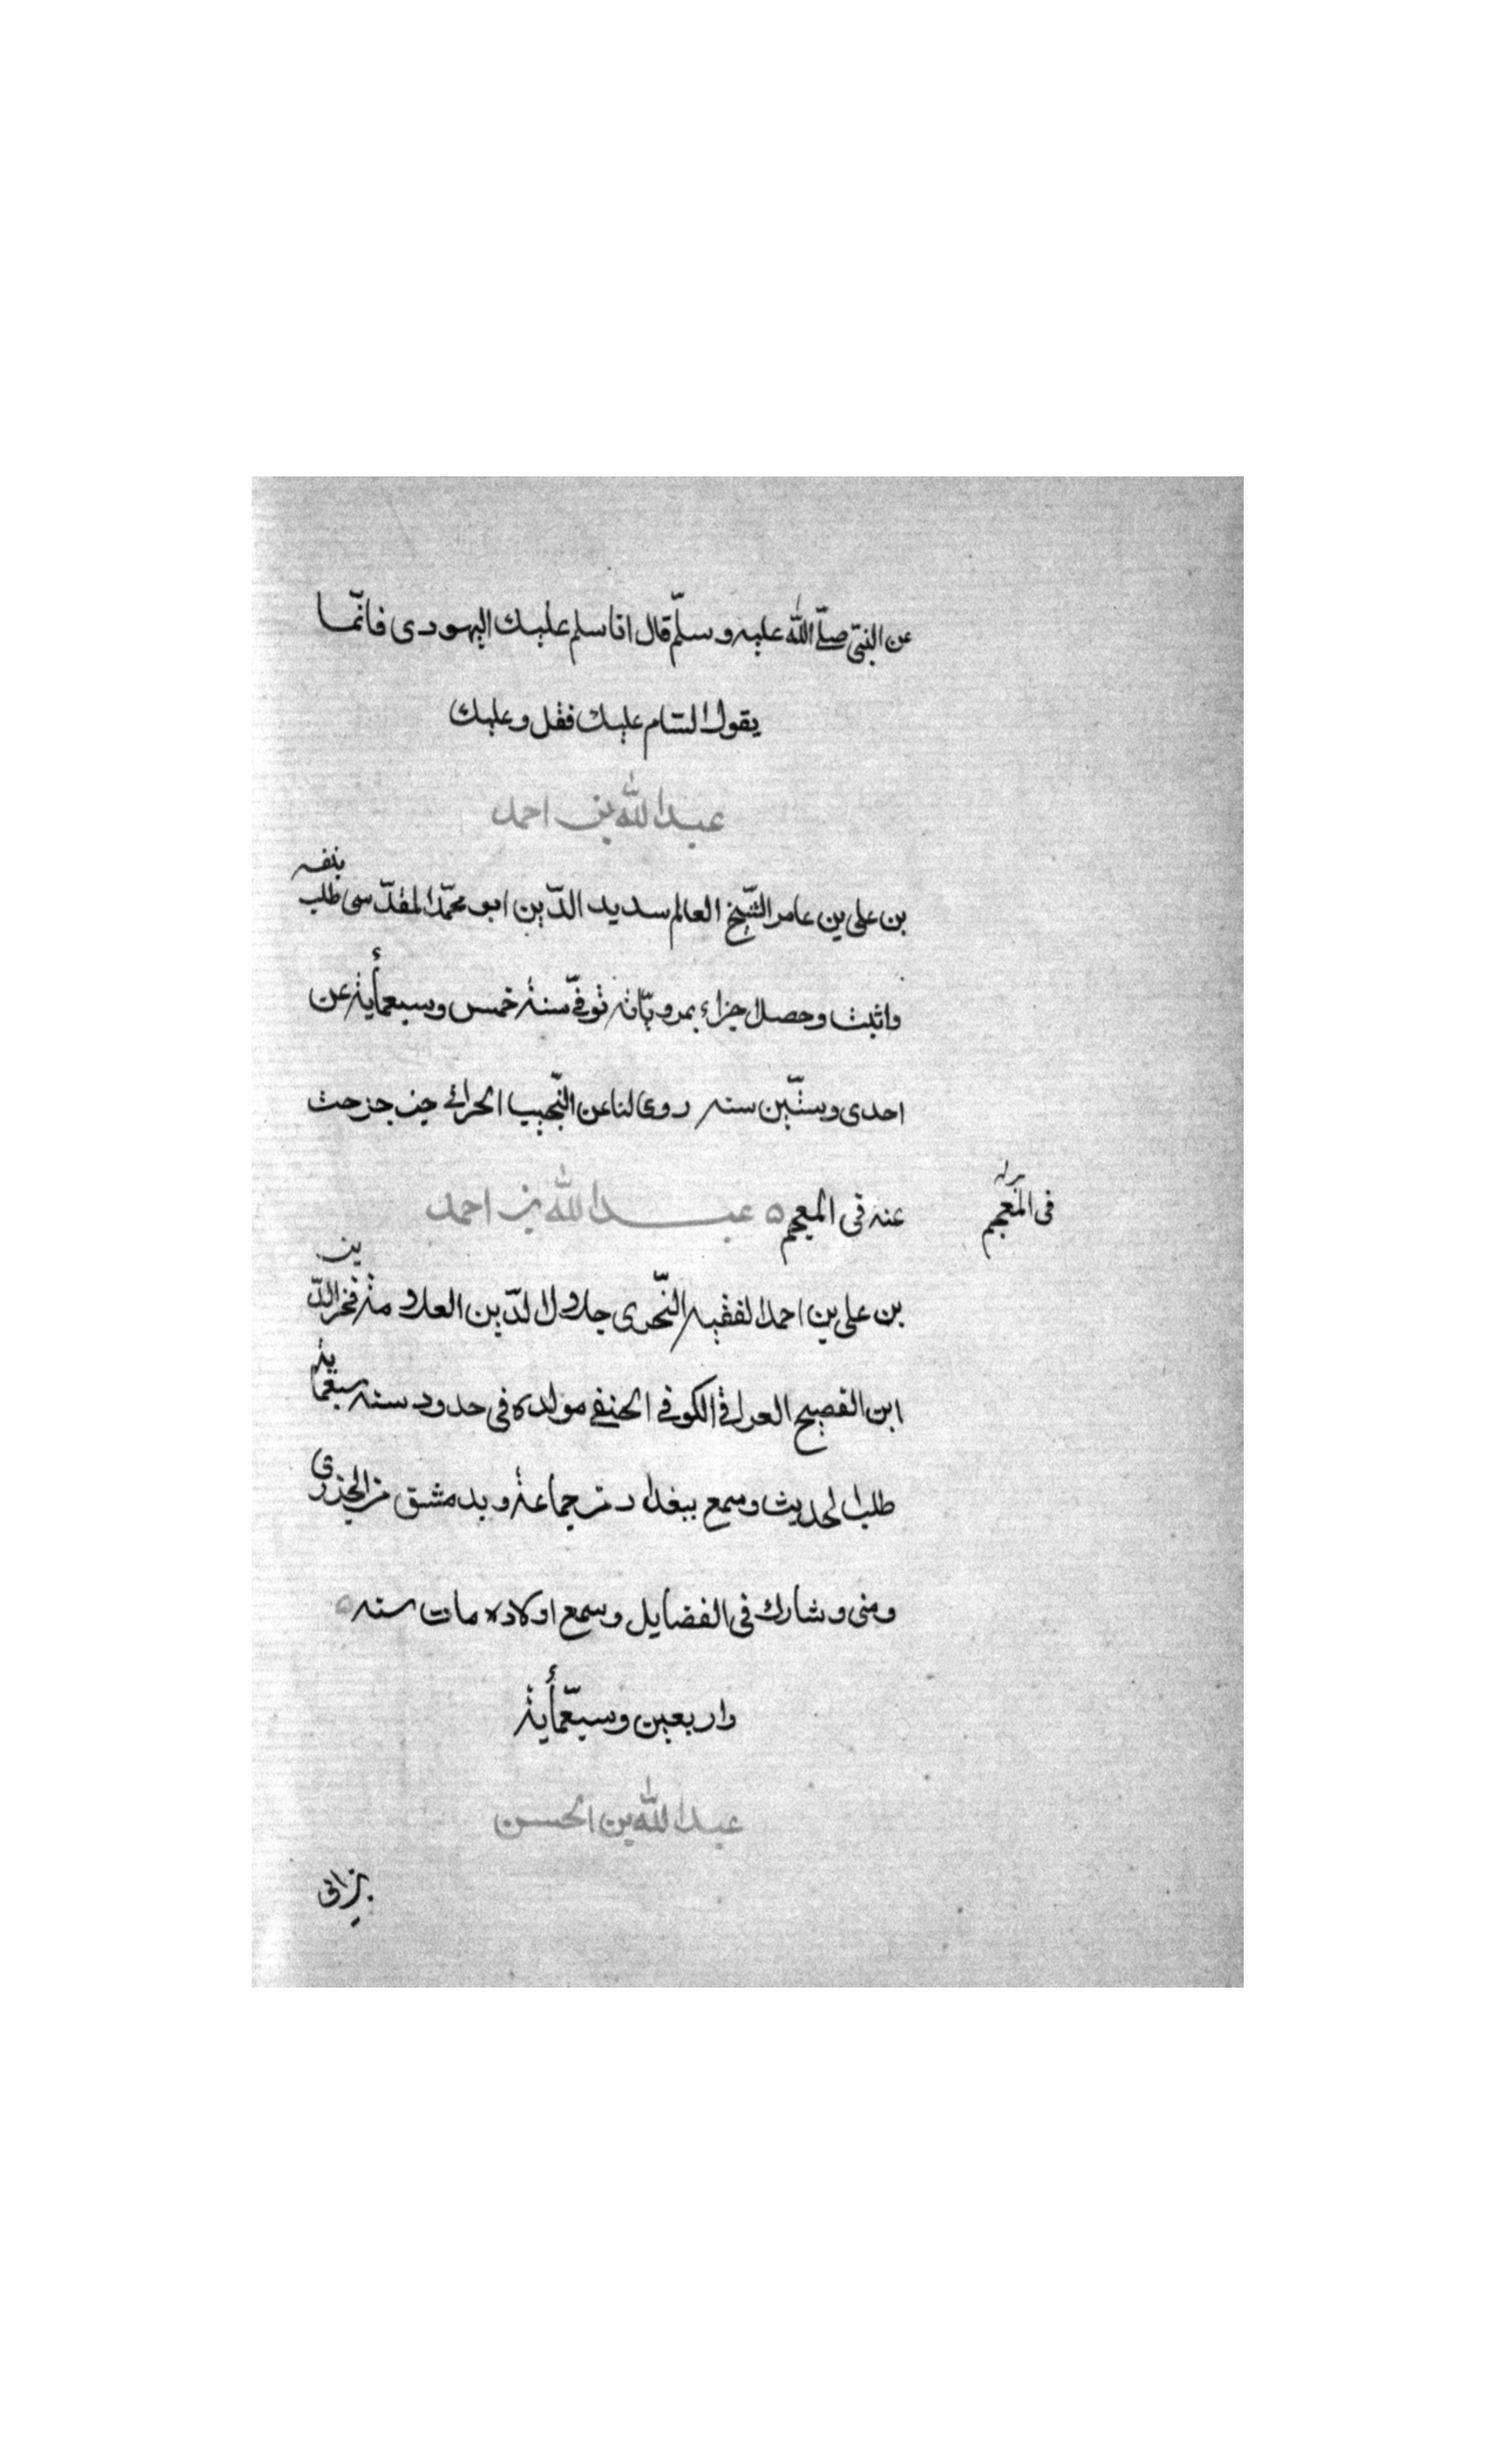 عن النبىّ صلّى الله عليه وسلّم قال اذا سلم عليك اليهودى فانّما
يقول السّام عليك فقل وعليك
عبد الله بن احمد
بن على بن عامر الشّيخ العالم سديد الدّين ابو محمّد المقدّسى طلب بنفسه
واثبت وحصل اجزاء توفّى سنة خمس وسبعمأية عن
احدى وستّين سنه روى لنا عن النّجيب الحرانى
عنه فى المعجم ه عبد الله بن احمد
فى المعجم
بن على بن احمد الفقيه النّحوى جلال الدّين العلامة فخر الدّين
ابن الفصيح العراقى الكوفى الحنفى مولده فى حدود سنه سبعمأية
طلب الحديث وسمع ببغداد من جماعة وبدمشق من الجزرى
ومنى وشارك فى الفضايل وسمع اولاده مات سنه ه
واربعين وسبعمأية
عبد الله بن الحسن